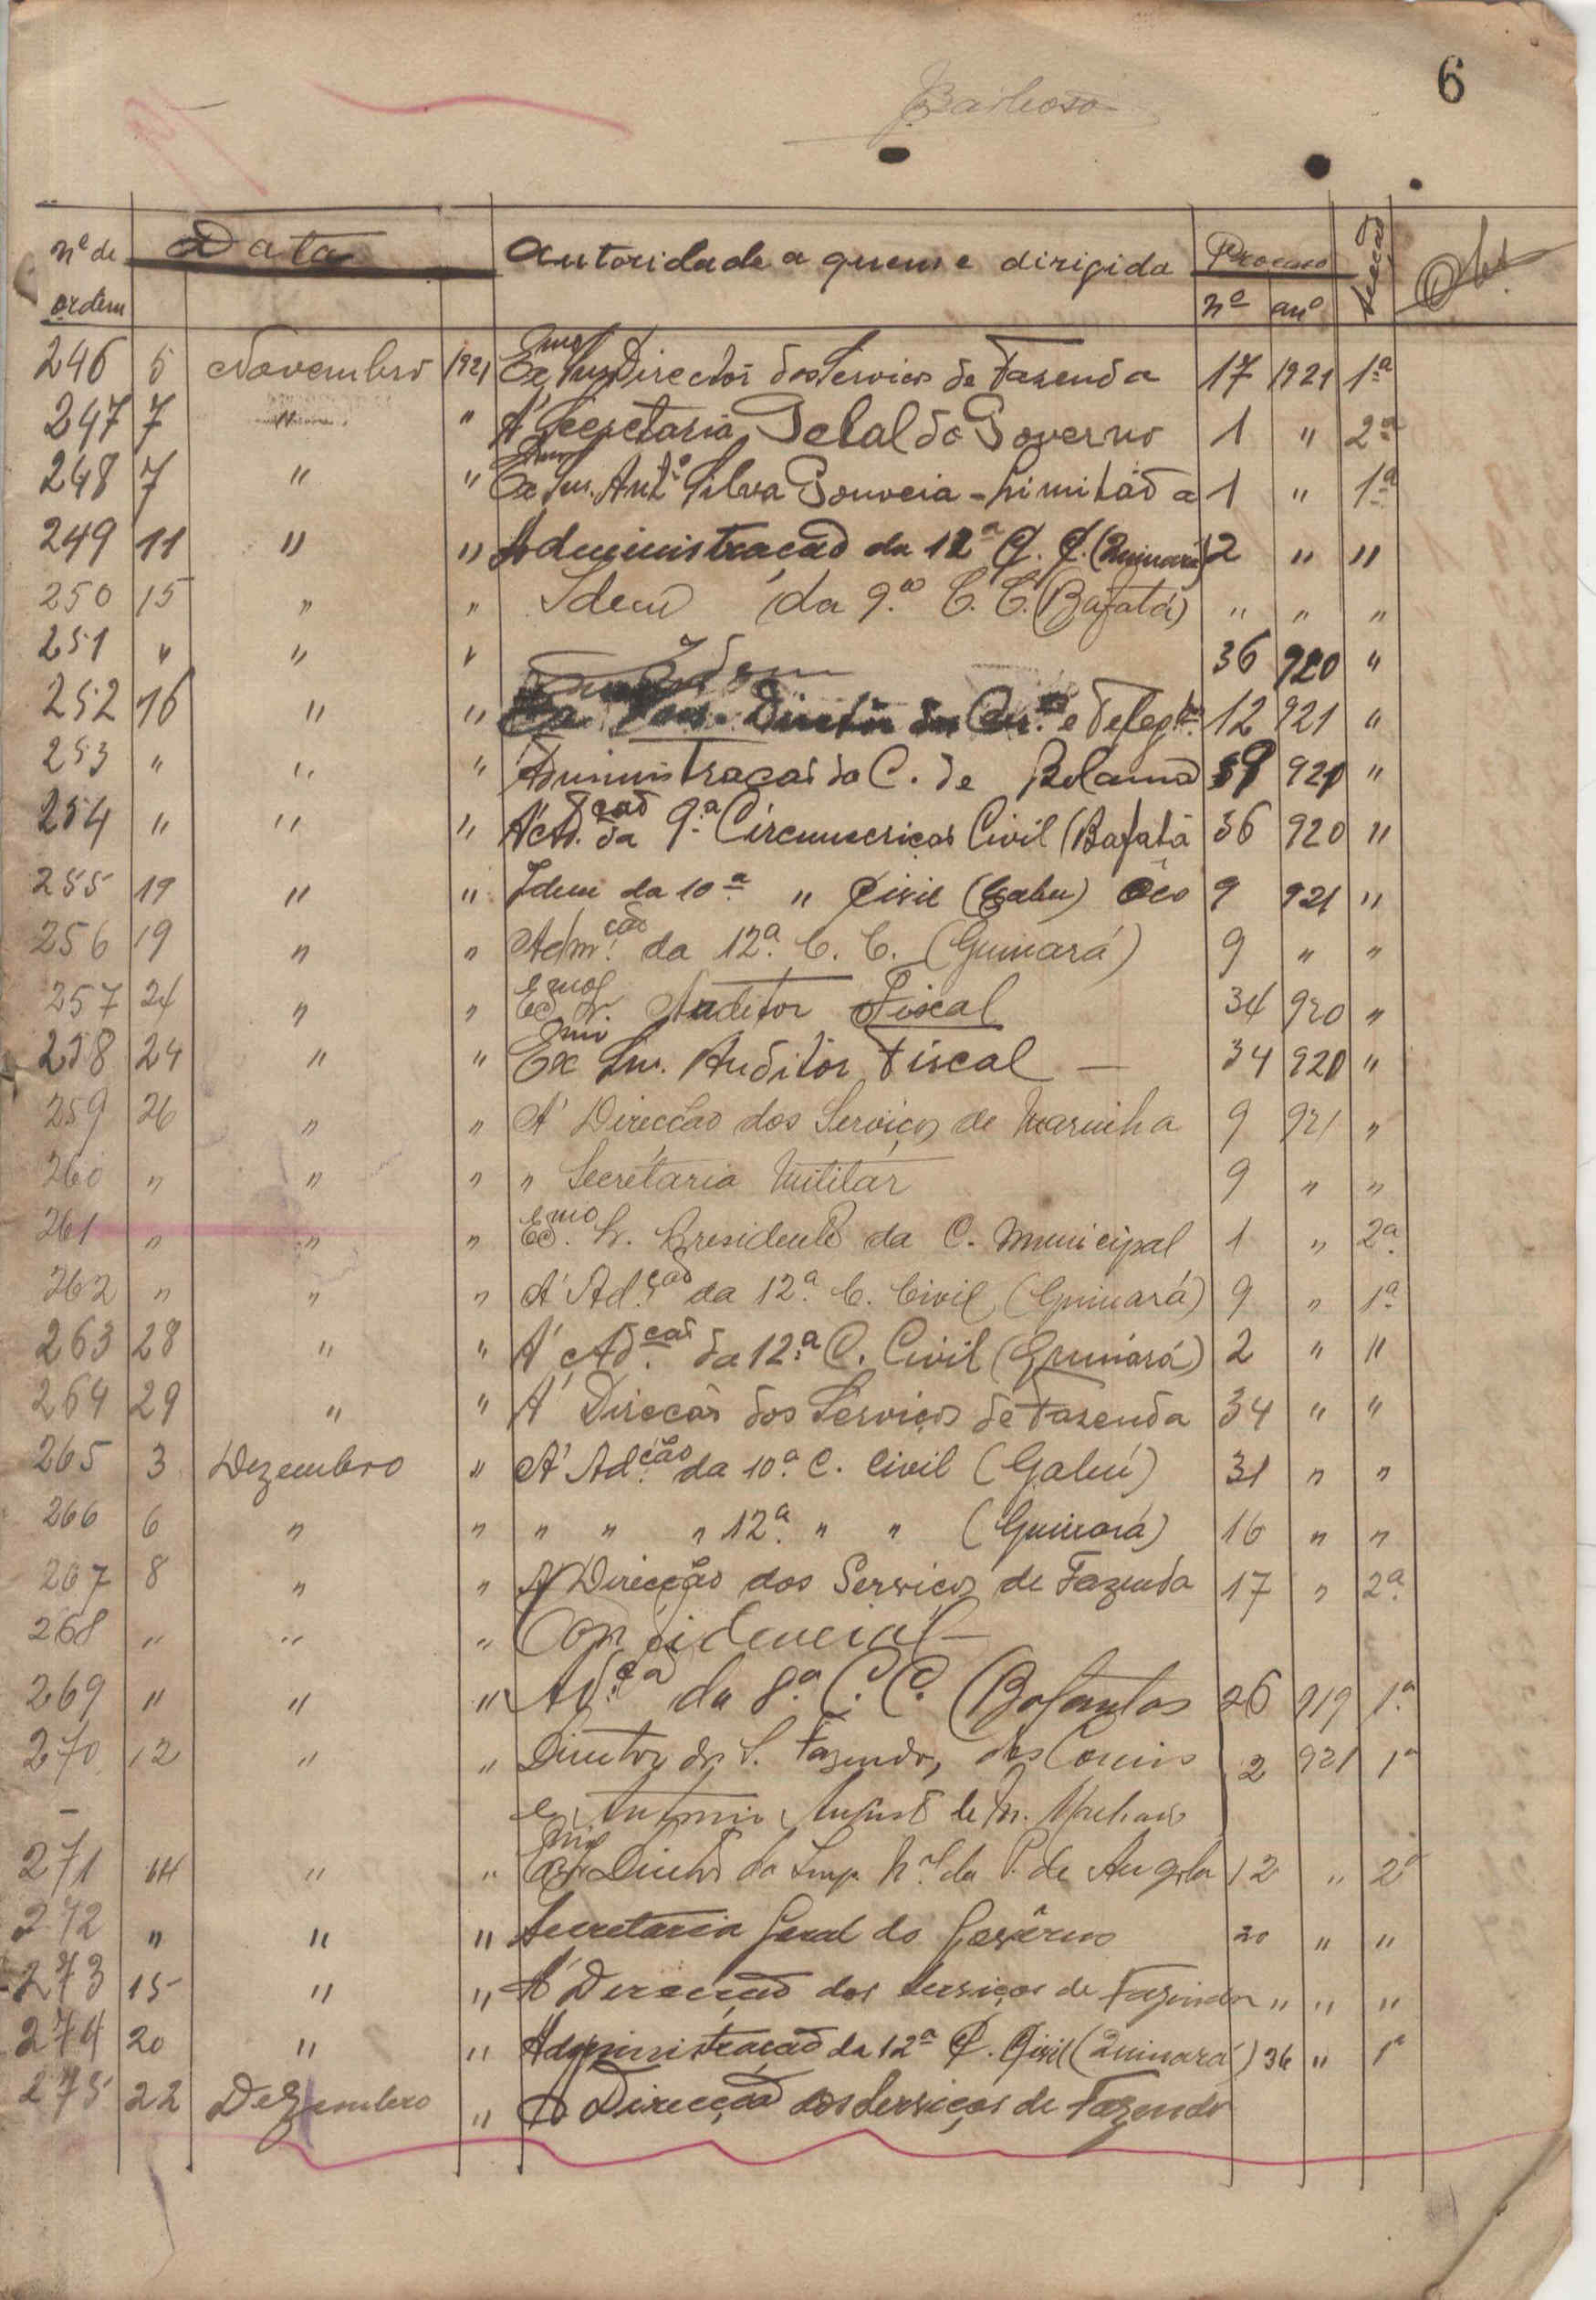 6
Barbosa
nº de ordem Data Autoridade a quem é dirigida Processo nº anº Secção Obs.
246 5 Novembro 1921 Exmo Snr Director dos Serviços de Fazenda 17 1921 1ª
247 7 " " A' Secretaria Geral do Governo 1 " 2ª
248 7 " " Exmo Snr. Antº Silva Gouveia - Limitada 1 " 1ª
249 11 " " Administração da 12ª C. C. (Quinará) 2 " "
250 15 " " Idem da 9.ª C. C. (Bafatá) " " "
251 " " " Idem 36 920 "
252 16 " " Director do Cor.º e Telegº 12 921 "
253 " " " Administração do C. de Bolama 921 "
254 " " " A' Ad.ção da 9.ª Circunscrição Civil (Bafatá 36 920 "
255 19 " " Idem da 10ª " Civil (Gabu) Oco 9 921 "
256 19 " " Adm.ção da 12ª. C. C. (Guinará) 9 " "
257 24 " " Exmo Sr. Auditor Fiscal 34 920 "
258 24 " " Exmo Snr. Auditor Fiscal — 34 920 "
259 26 " " A' Direcção dos Serviços de Marinha 9 921 "
260 " " " " Secretaria Militar 9 " "
261 " " " Exmo. Sr. Presidente da C. Municipal 1 " 2ª.
262 " " " A' Ad.ção da 12ª. C. Civil (Guinará) 9 " 1ª.
263 28 " " A' Ad.ção da 12.ª C. Civil (Guinará) 2 " "
264 29 " " A' Direcção dos Serviços de Fazenda 34 " "
265 3 Dezembro " A' Ad.ção da 10ª. C. Civil (Gabú) 31 " "
266 6 " " " " " 12ª. " " (Guinará) 16 " "
267 8 " " A' Direcção dos Serviços de Fazenda 17 " 2ª.
268 " " " Confidencial —
269 " " " Ad.ção da 8.ª C. C. (Bafantas 26 919 1.ª
270 12 " " Director dos S. Fazenda, dos Correios 2 921 1ª
– e Antonio August de M.
271 14 " " Exmo Sr. Director da Imp. Nal da P. de Angola 12 " 2ª
272 " " " Secretaria Geral do Govêrno 20 " "
273 15 " " A' Direcção dos Serviços de Fazenda " " "
274 20 " " Administração da 12ª C. Civil (Quinará) 36 " 1ª
275 22 Dezembro " A' Direcção dos Serviços de Fazenda